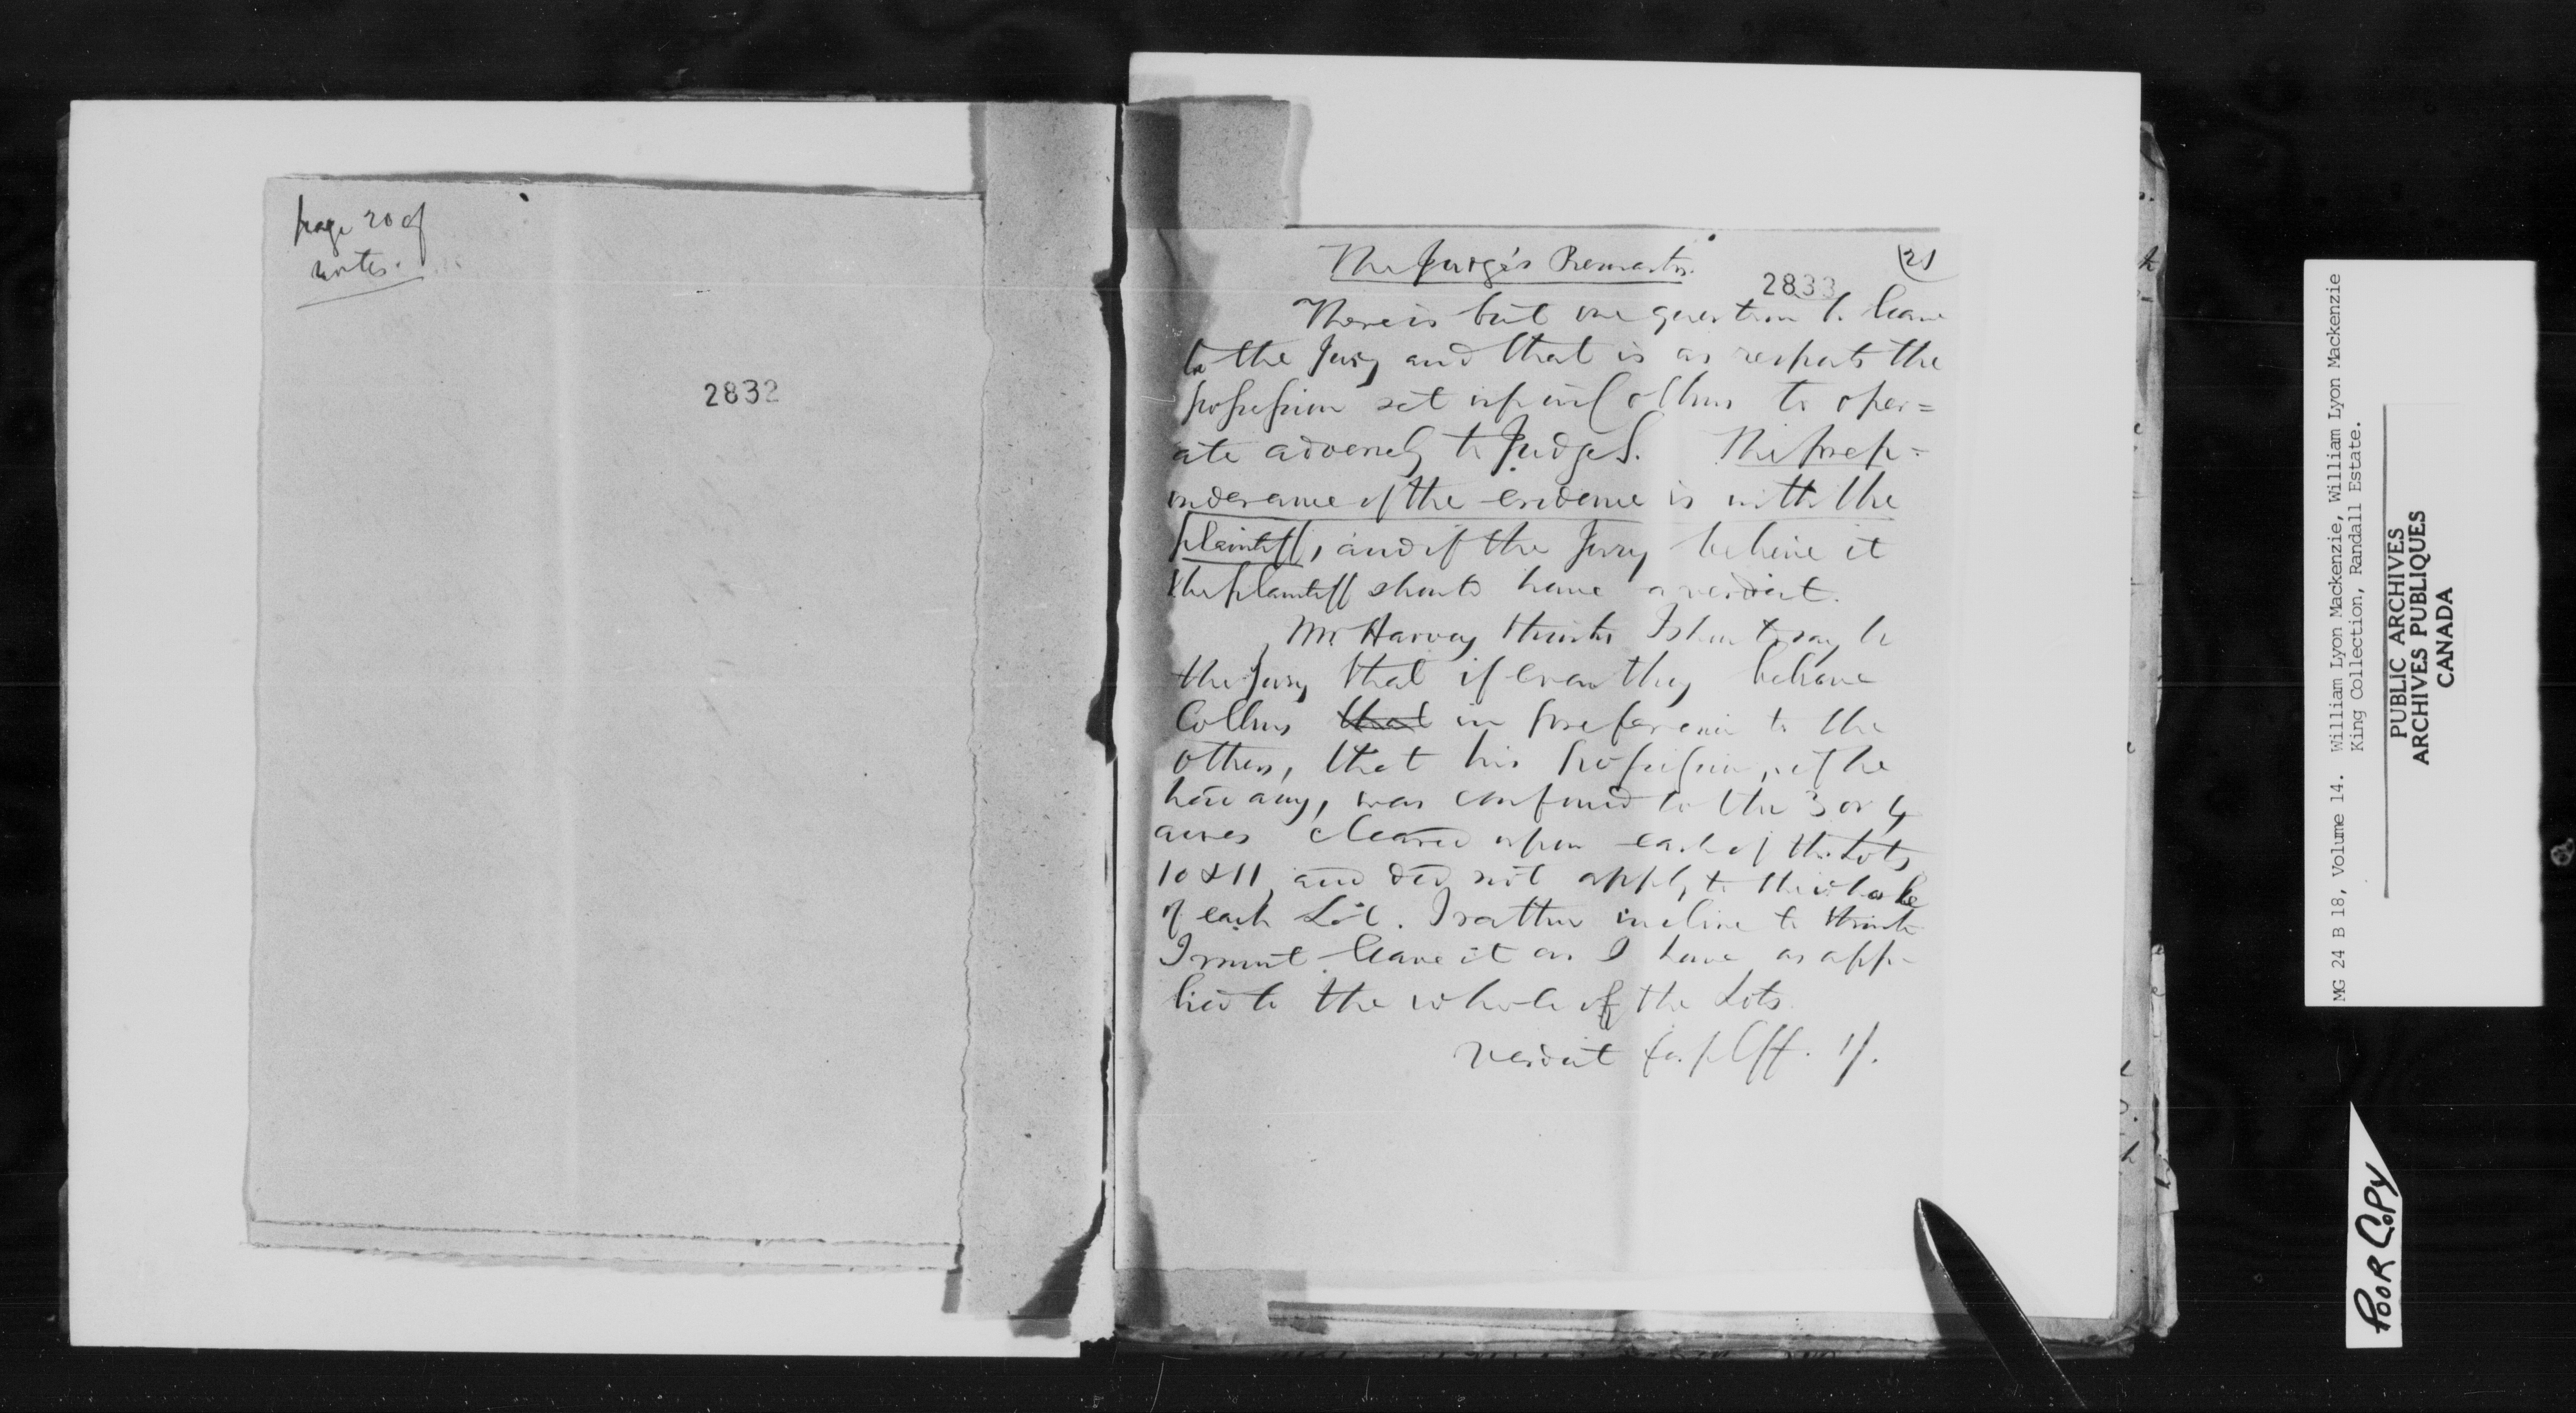 page 20 of
notes.
2832
The Judge's Remarks.
(21
2833
There is but one question to leave
to the Jury and that is as respects the
possession set up in Collins to oper=
ate adversely to Judge S. The prep=
onderance of the evidence is with the
plaintiff, and if the Jury believe it
the plaintiff should have a verdict.
Mr. Harvey thinks I should say to
the Jury that if even they believe
Collins that in preference to the
others, that his possession, if he
have any, was confined to the 3 or 4
acres cleared upon each of the Lots
10 & 11, and did not apply to the whole
of each Lot. I rather incline to think
I must leave it as I have as app-
lied to the whole of the Lots.
Verdict for plff. 1/.
MG 24 B 18, Volume 14. William Lyon Mackenzie, William Lyon Mackenzie
King Collection, Randall Estate.
PUBLIC ARCHIVES
ARCHIVES PUBLIQUES
CANADA
POOR COPY